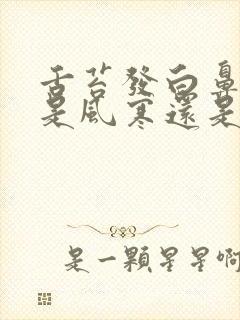 舌苔發白鼻
是風寒還是
是一顆星星啊